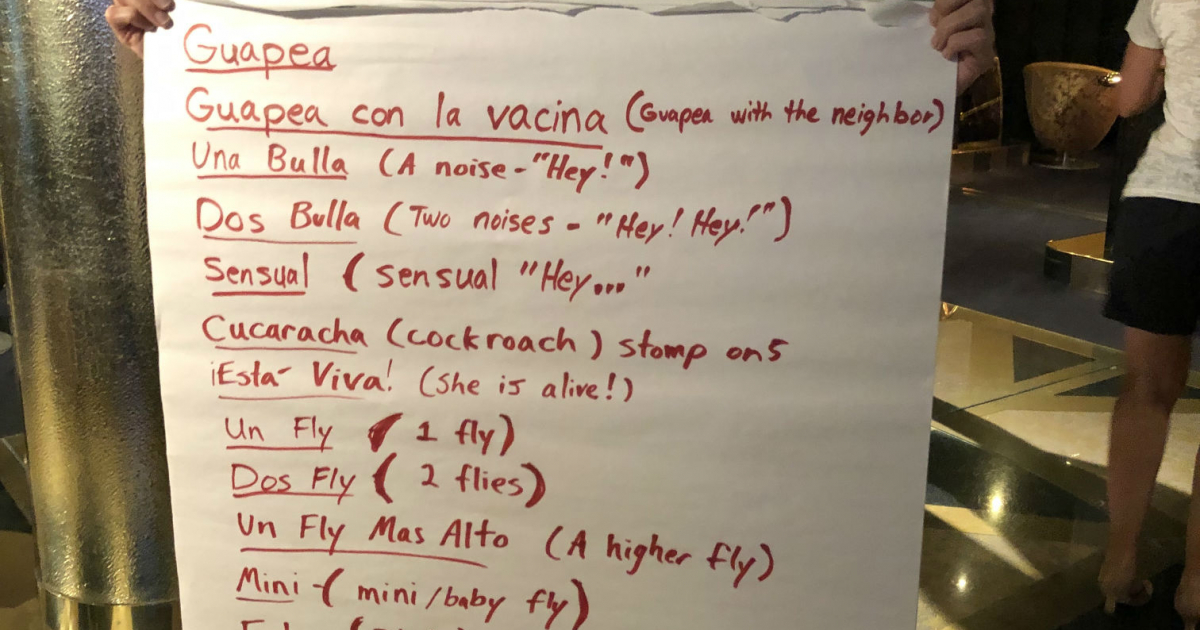 Guapea
Guapea con la vacina (Guapea with the neighbor)
Una Bulla (A noise-"Hey!")
Dos Bulla (Two noises - "Hey! Hey!")
Sensual (sensual "Hey..."
Cucaracha (cockroach) stomp on 5
¡Está Viva! (She is alive!)
Un Fly (1 fly)
Dos Fly (2 flies)
Un Fly Mas Alto (A higher fly)
Mini - (mini/baby fly)